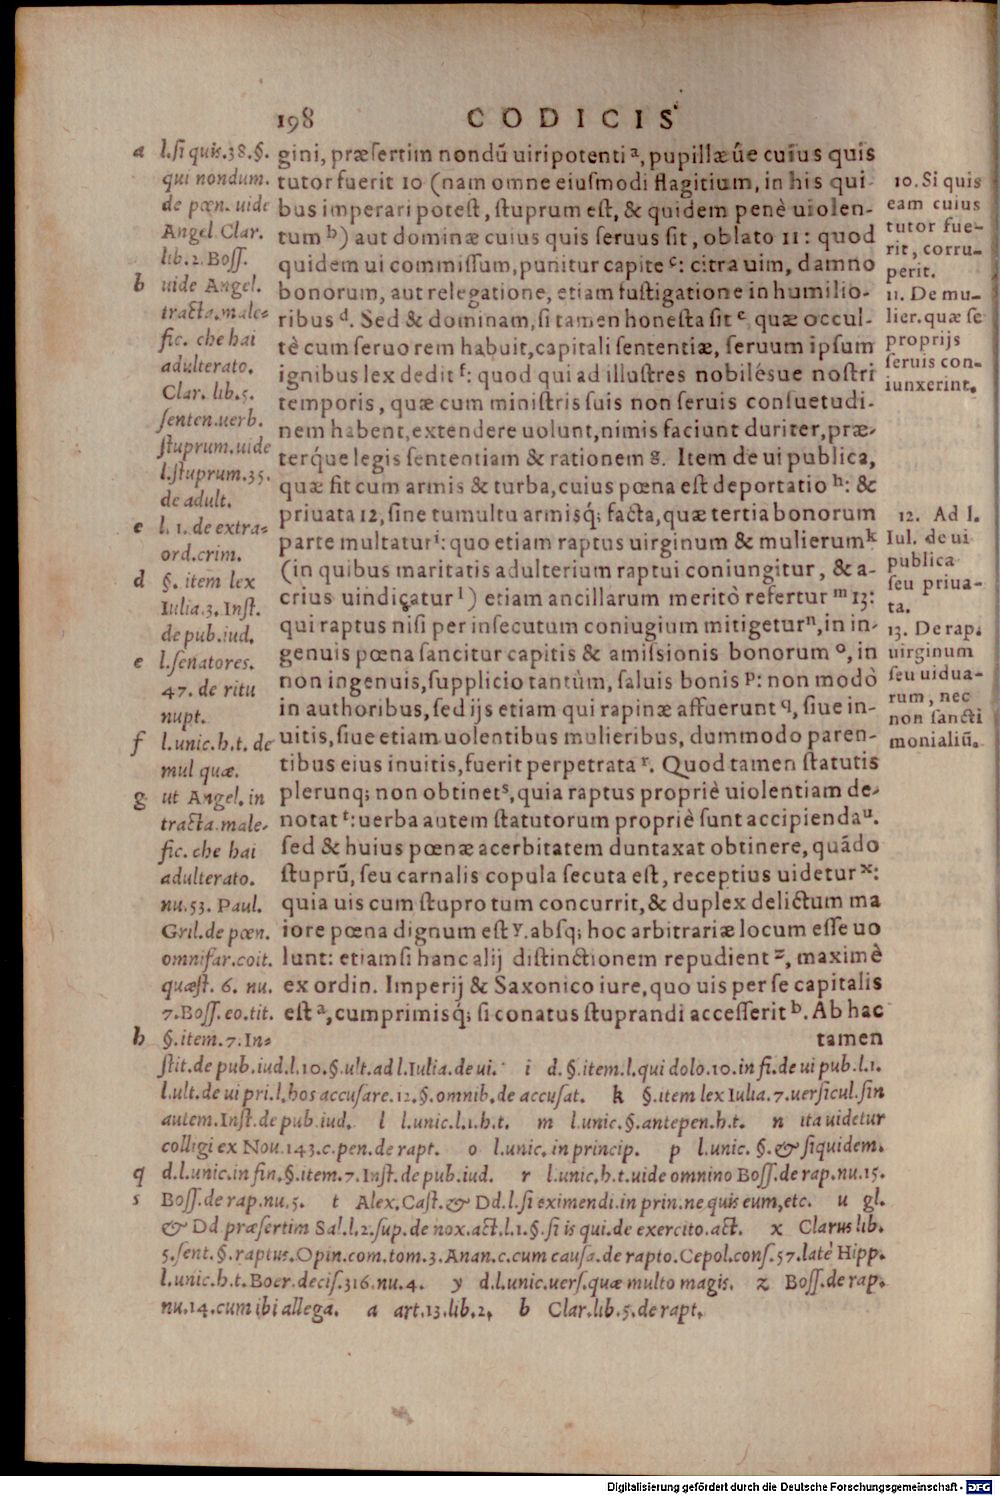 198 CODICIS
gini, præſertim nondū uiripotenti a, pupillæûe cuius quis
tutor fuerit 10 (nam omne eiuſmodi flagitium, in his qui-
bus imperari poteſt, ſtuprum eſt, & quidem penè uiolen-
tum b) aut dominæ cuius quis ſeruus ſit, oblato 11: quod
quidem ui commiſſum, punitur capite c: citra uim, damno
bonorum, aut relegatione, etiam fuſtigatione in humilio-
ribus d. Sed & dominam, ſi tamen honeſta ſit e quæ occul-
tè cum ſeruo rem habuit, capitali ſententiæ, ſeruum ipſum
ignibus lex dedit f: quod qui ad illuſtres nobilésue noſtri
temporis, quæ cum miniſtris ſuis non ſeruis conſuetudi-
nem habent, extendere uolunt, nimis faciunt duriter, præ-
terq́ue legis ſententiam & rationem g. Item de ui publica,
quæ fit cum armis & turba, cuius pœna eſt deportatio h: &
priuata 12, ſine tumultu armisq́; facta, quæ tertia bonorum
parte multatur i: quo etiam raptus uirginum & mulierum k
(in quibus maritatis adulterium raptui coniungitur, & a-
crius uindicatur l) etiam ancillarum meritò refertur m 13:
qui raptus niſi per inſecutum coniugium mitigetur n, in in-
genuis pœna ſancitur capitis & amiſsionis bonorum o, in
non ingenuis, ſupplicio tantùm, ſaluis bonis p: non modò
in authoribus, ſed ijs etiam qui rapinæ affuerunt q, ſiue in-
uitis, ſiue etiam uolentibus mulieribus, dummodo paren-
tibus eius inuitis, fuerit perpetrata r. Quod tamen ſtatutis
plerunq; non obtinet s, quia raptus propriè uiolentiam de-
notat t: uerba autem ſtatutorum propriè ſunt accipienda u.
ſed & huius pœnæ acerbitatem duntaxat obtinere, quādo
ſtuprū, ſeu carnalis copula ſecuta eſt, receptius uidetur x:
quia uis cum ſtupro tum concurrit, & duplex delictum ma
iore pœna dignum eſt y. absq; hoc arbitrariæ locum eſſe uo
lunt: etiamſi hanc alij diſtinctionem repudient z, maximè
ex ordin. Imperij & Saxonico iure, quo uis per ſe capitalis
eſt a, cumprimisq́; ſi conatus ſtuprandi acceſſerit b. Ab hac
tamen
a l. ſi quis. 38. §.
qui nondum.
de pœn. uide
Angel. Clar.
lib. 2. Boſſ.
b uide Angel.
tracta. male-
fic. che hai
adulterato.
Clar. lib. 5.
ſenten. uerb.
ſtuprum. uide
l. ſtuprum. 35.
de adult.
c l. 1. de extra-
ord. crim.
d §. item lex
Iulia. 3. Inſt.
de pub. iud.
e l. ſenatores.
47. de ritu
nupt.
f l. unic. h. t. de
mul quæ.
g ut Angel. in
tracta. male-
fic. che hai
adulterato.
nu. 53. Paul.
Gril. de pœn.
omnifar. coit.
quæſt. 6. nu.
7. Boſſ. eo. tit.
h §. item. 7. In-
ſtit. de pub. iud. l. 10. §. ult. ad l. Iulia. de ui. i d. §. item. l. qui dolo. 10. in fi. de ui pub. l. 1.
l. ult. de ui pri. l. hos accuſare. 12. §. omnib. de accuſat. k §. item lex Iulia. 7. uerſicul. ſin
autem. Inſt. de pub. iud. l l. unic. l. 1. h. t. m l. unic. §. antepen. h. t. n ita uidetur
colligi ex Nou. 143. c. pen. de rapt. o l. unic. in princip. p l. unic. §. & ſiquidem.
q d. l. unic. in fin. §. item. 7. Inſt. de pub. iud. r l. unic. h. t. uide omnino Boſſ. de rap. nu. 15.
s Boſſ. de rap. nu. 5. t Alex. Caſt. & Dd. l. ſi eximendi. in prin. ne quis eum, etc. u gl.
& Dd præſertim Sal. l. 2. ſup. de nox. act. l. 1. §. ſi is qui. de exercito. act. x Clarus lib.
5. ſent. §. raptus. Opin. com. tom. 3. Anan. c. cum cauſa. de rapto. Cepol. conſ. 57. latè Hipp.
l. unic. h. t. Boer. deciſ. 316. nu. 4. y d. l. unic. uerſ. quæ multo magis. z Boſſ. de rap.
nu. 14. cum ibi allega. a art. 13. lib. 2. b Clar. lib. 5. de rapt.
10. Si quis
eam cuius
tutor fue-
rit, corru-
perit.
11. De mu-
lier. quæ ſe
proprijs
ſeruis con-
iunxerint.
12. Ad l.
Iul. de ui
publica
ſeu priua-
ta.
13. De rap.
uirginum
ſeu uidua-
rum, nec
non ſancti
monialiū.
Digitalisierung gefördert durch die Deutsche Forschungsgemeinschaft - DFG